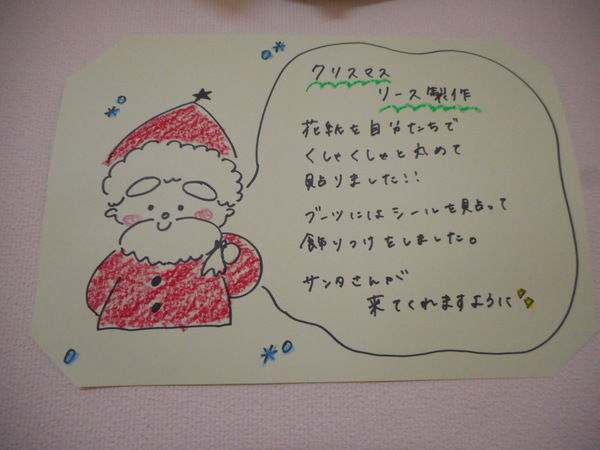 クリスマス
リース製作
花紙を自分たちで
くしゃくしゃと丸めて
貼りました!!
ブーツにはシールを貼って
飾りつけをしました。
サンタさんが
来てくれますように